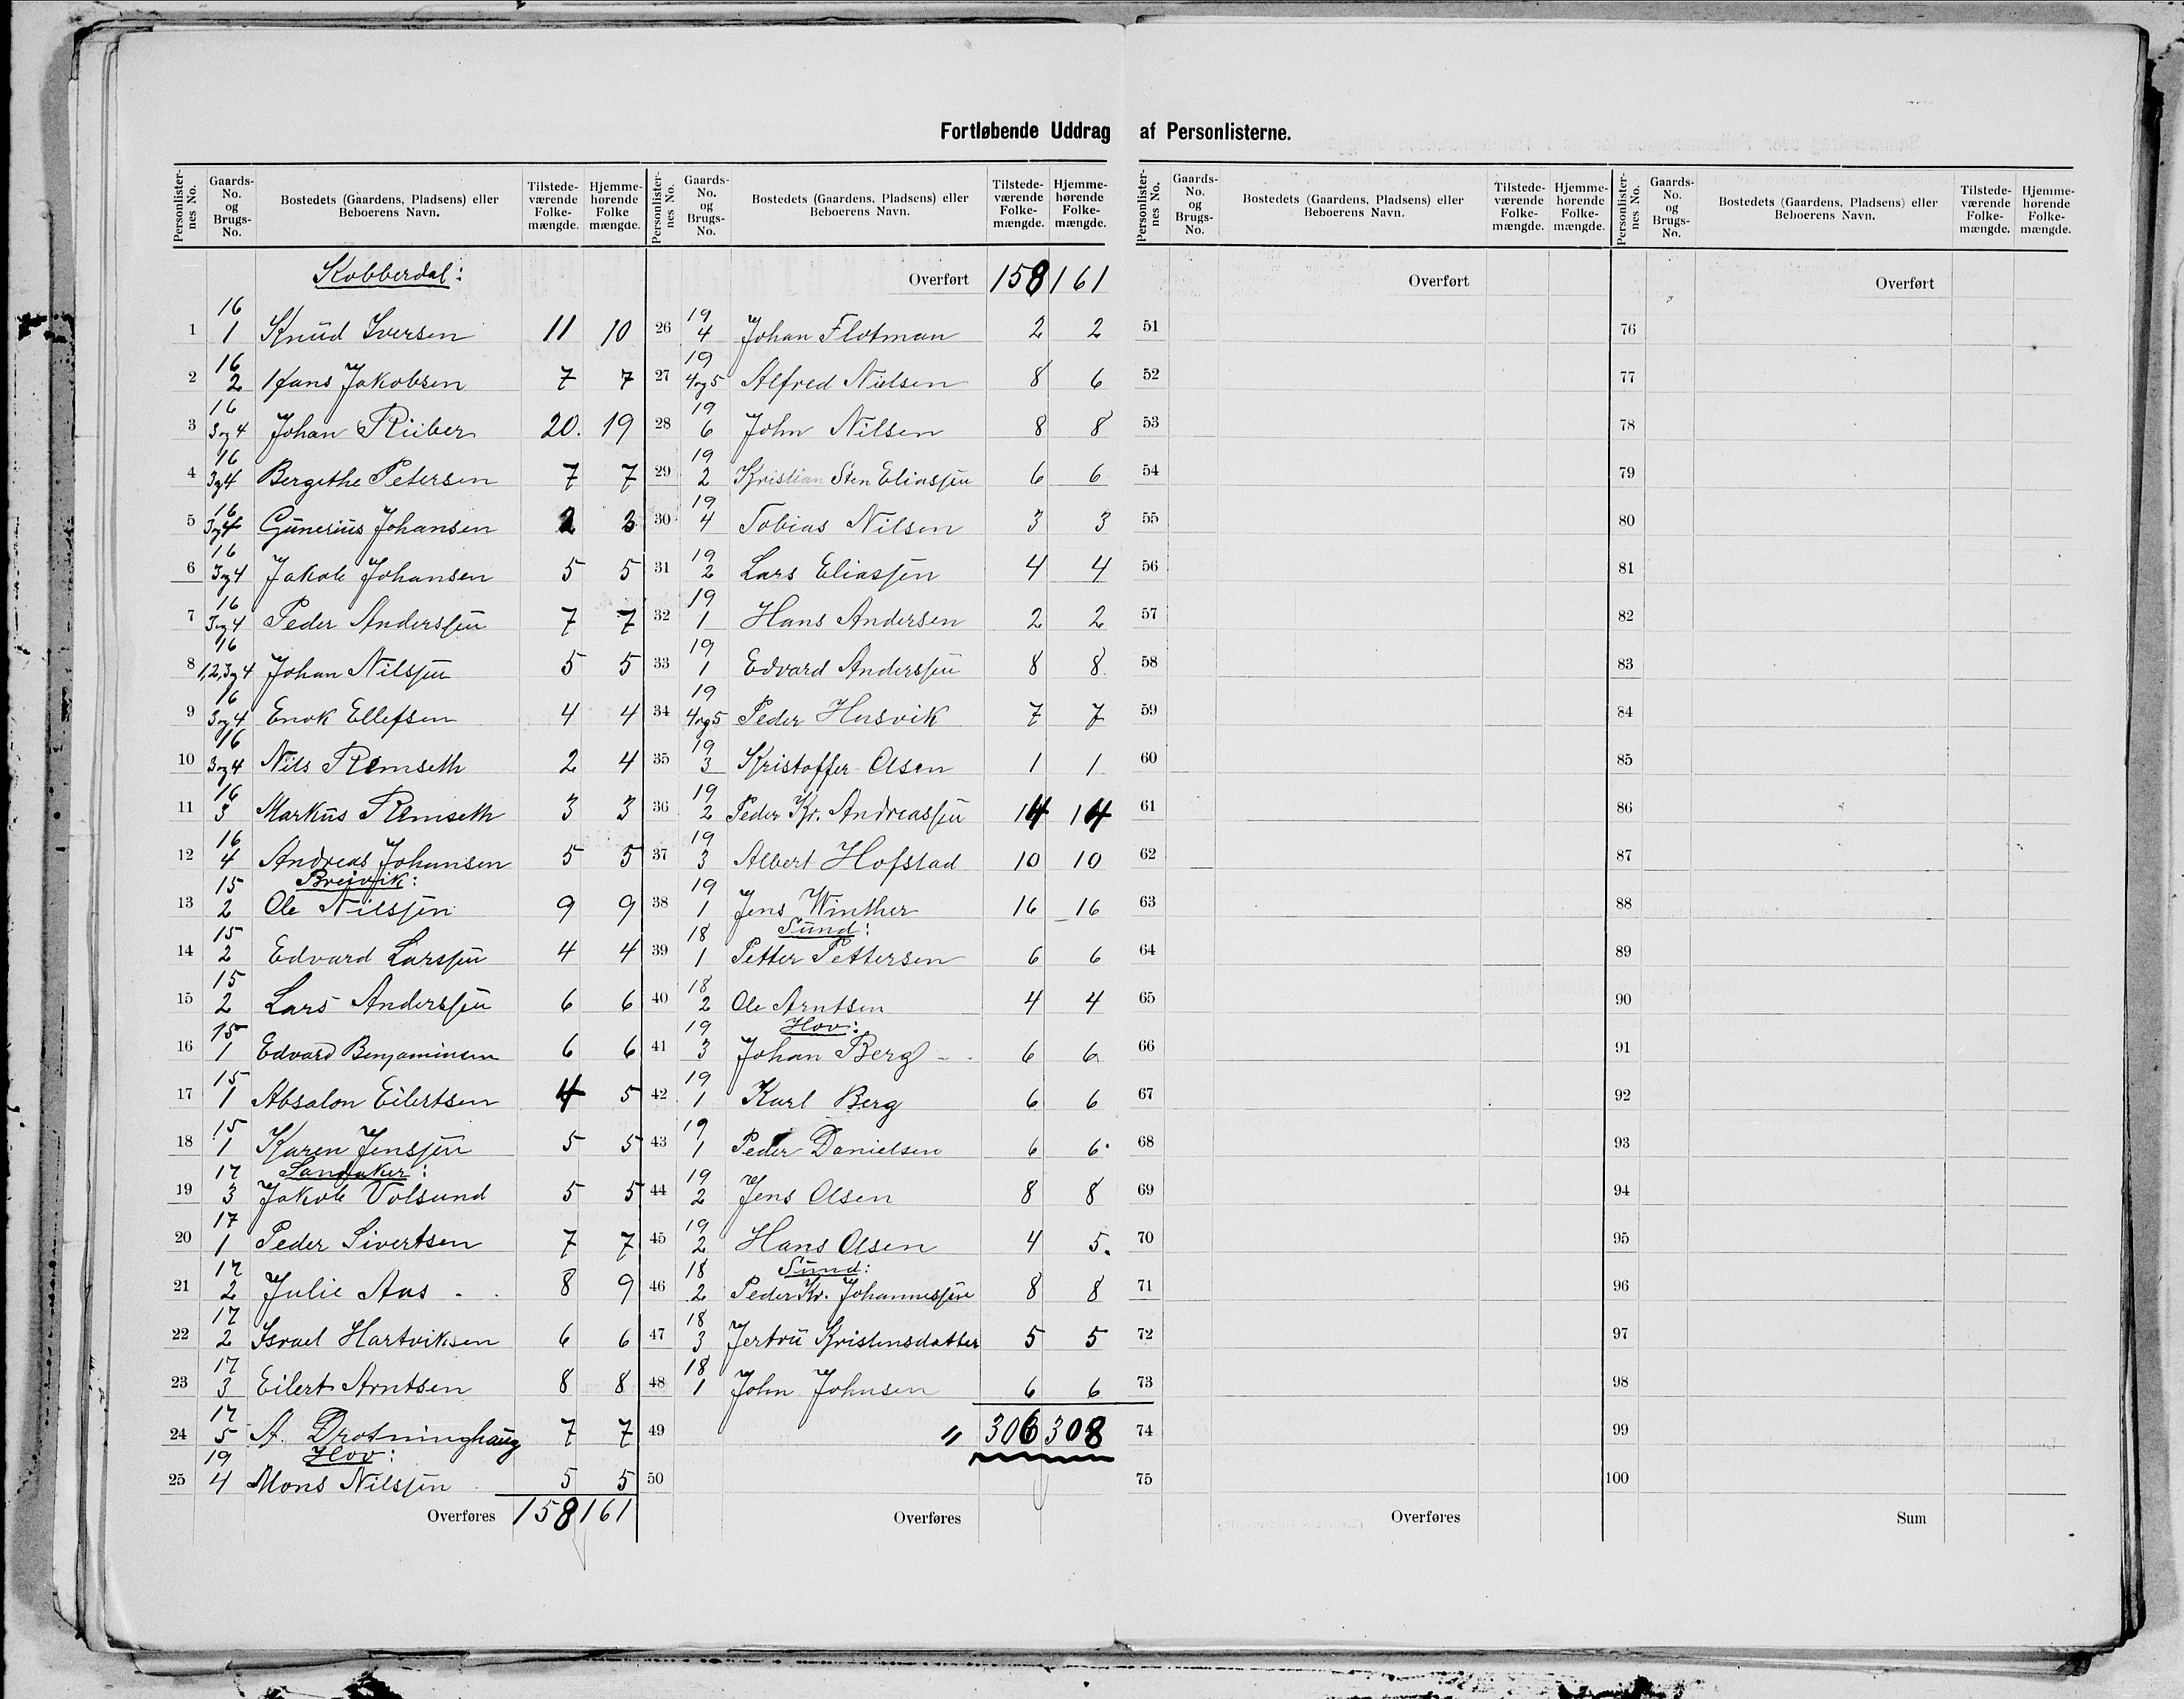 Fortløbende Uddrag af Personlisterne.
Personlisternes No. Gaards-No. og Brugs-No. Bostedets (Gaardens, Pladsens) eller Beboerens Navn. Tilstedeværende Folkemængde. Hjemmehørende Folkemængde.
Kobberdal:
1 16 1 Knud Iversen 11 10
2 16 2 Hans Jakobsen 7 7
3 16 3og4 Johan Riiber 20. 19
4 16 3og4 Bergithe Petersen 7 7
5 16 3og4 Gunerius Johansen 2 3
6 16 3og4 Jakob Johansen 5 5
7 16 3og4 Peder Anderssen 7 7
8 16 1,2,3og4 Johan Nilssen 5 5
9 16 3og4 Enok Ellefsen 4 4
10 16 3og4 Nils Remseth 2 4
11 16 3 Markus Remseth 3 3
12 16 4 Andreas Johansen 5 5
Breivik:
13 15 2 Ole Nilssen 9 9
14 15 2 Edvard Larssen 4 4
15 15 2 Lars Anderssen 6 6
16 15 1 Edvard Benjaminsen 6 6
17 15 1 Absalon Eilertsen 4 5
18 15 1 Karen Jenssen 5 5
Sandaker:
19 17 3 Jakob Volsund 5 5
20 17 1 Peder Sivertsen 7 7
21 17 2 Julie Aas 8 9
22 17 2 Israel Hartviksen 6 6
23 17 3 Eilert Arntsen 8 8
24 17 5 A. Drotninghaug 7 7
Hov:
25 19 4 Mons Nilssen 5 5
Overføres 158 161
Personlisternes No. Gaards-No. og Brugs-No. Bostedets (Gaardens, Pladsens) eller Beboerens Navn. Tilstedeværende Folkemængde. Hjemmehørende Folkemængde.
Overført 158 161
26 19 4 Johan Flotman 2 2
27 19 4og5 Alfred Nielsen 8 6
28 19 6 John Nilsen 8 8
29 19 2 Kristian Sten Eliassen 6 6
30 19 4 Tobias Nilsen 3 3
31 19 2 Lars Eliassen 4 4
32 19 1 Hans Andersen 2 2
33 19 1 Edvard Anderssen 8 8
34 19 4og5 Peder Husvik 7 7
35 19 3 Kristoffer Olsen 1 1
36 19 2 Peder Kr. Andreassen 14 14
37 19 3 Albert Hofstad 10 10
38 19 1 Jens Winther 16 16
Sund:
39 18 1 Petter Pettersen 6 6
40 18 2 Ole Arntsen 4 4
Hov:
41 19 3 Johan Berg 6 6
42 19 1 Karl Berg 6 6
43 19 1 Peder Danielsen 6 6
44 19 2 Jens Olsen 8 8
45 19 2 Hans Olsen 4 5.
Sund:
46 18 2 Peder Kr. Johannessen 8 8
47 18 3 Jertru Kristensdatter 5 5
48 18 1 John Johnsen 6 6
49 " 306 308
50
Overføres
Personlisternes No. Gaards-No. og Brugs-No. Bostedets (Gaardens, Pladsens) eller Beboerens Navn. Tilstedeværende Folkemængde. Hjemmehørende Folkemængde.
Overført
51
52
53
54
55
56
57
58
59
60
61
62
63
64
65
66
67
68
69
70
71
72
73
74
75
Overføres
Personlisternes No. Gaards-No. og Brugs-No. Bostedets (Gaardens, Pladsens) eller Beboerens Navn. Tilstedeværende Folkemængde. Hjemmehørende Folkemængde.
Overført
76
77
78
79
80
81
82
83
84
85
86
87
88
89
90
91
92
93
94
95
96
97
98
99
100
Sum